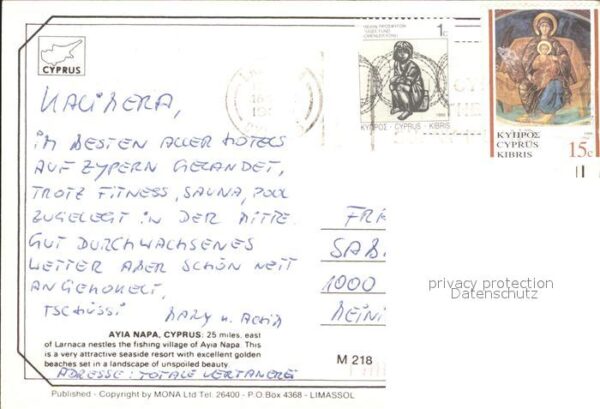 CYPRUS
KALIMERA,
IM BESTEN ALLER HOTELS
AUF ZYPERN GELANDET,
TROTZ FITNESS, SAUNA, POOL
ZUGELEGT IN DER MITTE.
GUT DURCHWACHSENES
WETTER ABER SCHÖN
TSCHÜSSI MARY U.
AYIA NAPA, CYPRUS: 25 miles, east
of Larnaca nestles the fishing village of Ayia Napa. This
is a very attractive seaside resort with excellent golden
beaches set in a landscape of unspoiled beauty.
ADRESSE: TOTALE
Published - Copyright by MONA Ltd Tel. 26400 - P.O.Box 4368 - LIMASSOL
1c
ΚΥΠΡΟΣ - CYPRUS KIBRIS
ΚΥΠΡΟΣ
CYPRUS
KIBRIS 15c
1000
privacy protection
Datenschutz
M 218